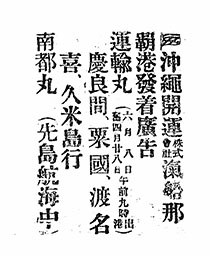 沖繩開運株式会社滊船那
覇港發着廣告
運輸丸(六月八日午前九時出港
舊四月廿八日
慶良間、粟國、渡名
喜、久米島行
南都丸(先島航海中)